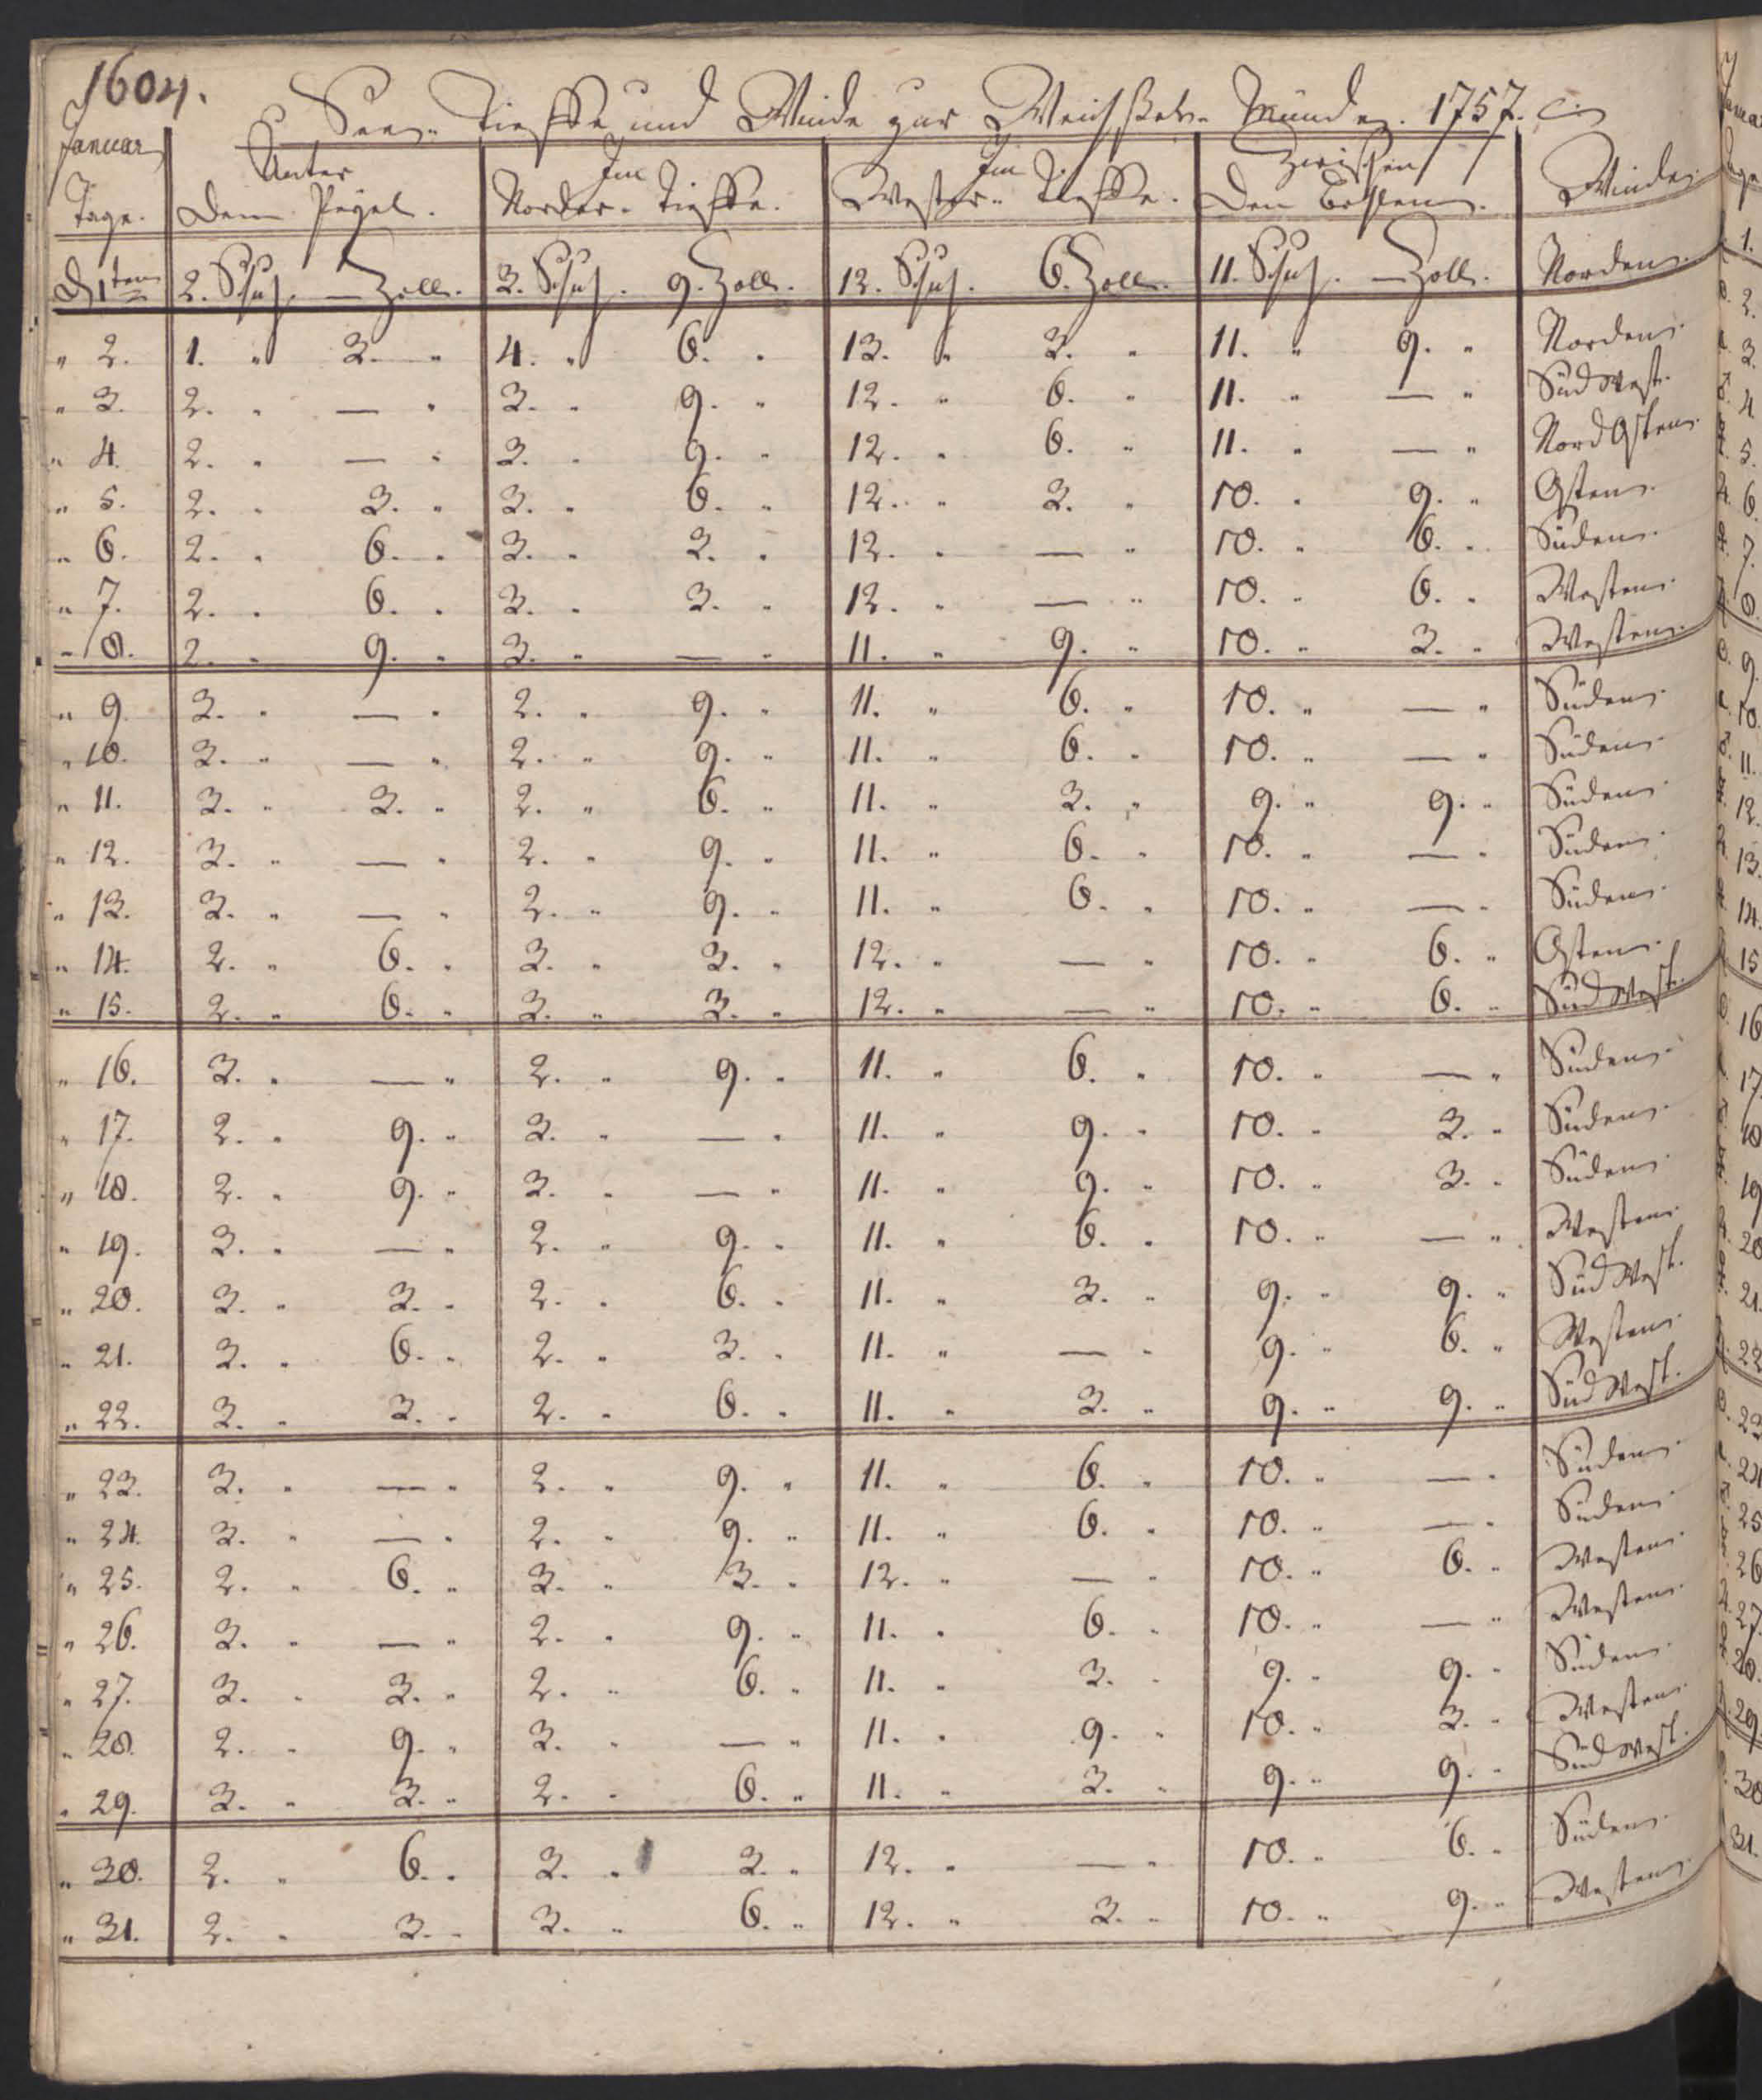 1604.
See- Tieffe und Winde zur Weichsel- Münde. 1757.
Januar
Tage.
Unter
Dem Pegel.
Im
Norder- Tieffe.
Im
Wester- Tieffe.
Zwischen
Den
Winde.
D 1ten 2. Schuh. — Zoll. 3. Schuh. 9. Zoll. 12. Schuh. 6. Zoll. 11. Schuh. — Zoll. Norden.
" 2. 1. " 3. " 4. " 6. " 13. " 3. " 11. " 9. " Norden.
" 3. 2. " — " 3. " 9. " 12. " 6. " 11. " — " Süd West.
" 4. 2. " — " 3. " 9. " 12. " 6. " 11. " — " Nord Osten.
" 5. 2. " 3. " 3. " 6. " 12. " 3. " 10. " 9. " Osten.
" 6. 2. " 6. " 3. " 3. " 12. " — " 10. " 6. " Süden.
" 7. 2. " 6. " 3. " 3. " 12. " — " 10. " 6. " Westen.
" 8. 2. " 9. " 3. " — " 11. " 9. " 10. " 3. " Westen.
" 9. 3. " — " 2. " 9. " 11. " 6. " 10. " — " Süden.
" 10. 3. " — " 2. " 9. " 11. " 6. " 10. " — " Süden.
" 11. 3. " 3. " 2. " 6. " 11. " 3. " 9. " 9. " Süden.
" 12. 3. " — " 2. " 9. " 11. " 6. " 10. " — " Süden.
" 13. 3. " — " 2. " 9. " 11. " 6. " 10. " — " Süden.
" 14. 2. " 6. " 3. " 3. " 12. " — " 10. " 6. " Osten.
" 15. 2. " 6. " 3. " 3. " 12. " — " 10. " 6. " Süd West.
" 16. 3. " — " 2. " 9. " 11. " 6. " 10. " — " Süden.
" 17. 2. " 9. " 3. " — " 11. " 9. " 10. " 3. " Süden.
" 18. 2. " 9. " 3. " — " 11. " 9. " 10. " 3. " Süden.
" 19. 3. " — " 2. " 9. " 11. " 6. " 10. " — " Westen.
" 20. 3. " 3. " 2. " 6. " 11. " 3. " 9. " 9. " Süd West.
" 21. 3. " 6. " 2. " 3. " 11. " — " 9. " 6. " Westen.
" 22. 3. " 3. " 2. " 6. " 11. " 3. " 9. " 9. " Süd West.
" 23. 3. " — " 2. " 9. " 11. " 6. " 10. " — " Süden.
" 24. 3. " — " 2. " 9. " 11. " 6. " 10. " — " Süden.
" 25. 2. " 6. " 3. " 3. " 12. " — " 10. " 6. " Westen.
" 26. 3. " — " 2. " 9. " 11. " 6. " 10. " — " Westen.
" 27. 3. " 3. " 2. " 6. " 11. " 3. " 9. " 9. " Süden.
" 28. 2. " 9. " 3. " — " 11. " 9. " 10. " 3. " Westen.
" 29. 3. " 3. " 2. " 6. " 11. " 3. " 9. " 9. " Süd West.
" 30. 2. " 6. " 3. " 3. " 12. " — " 10. " 6. " Süden.
" 31. 2. " 3. " 3. " 6. " 12. " 3. " 10. " 9. " Westen.